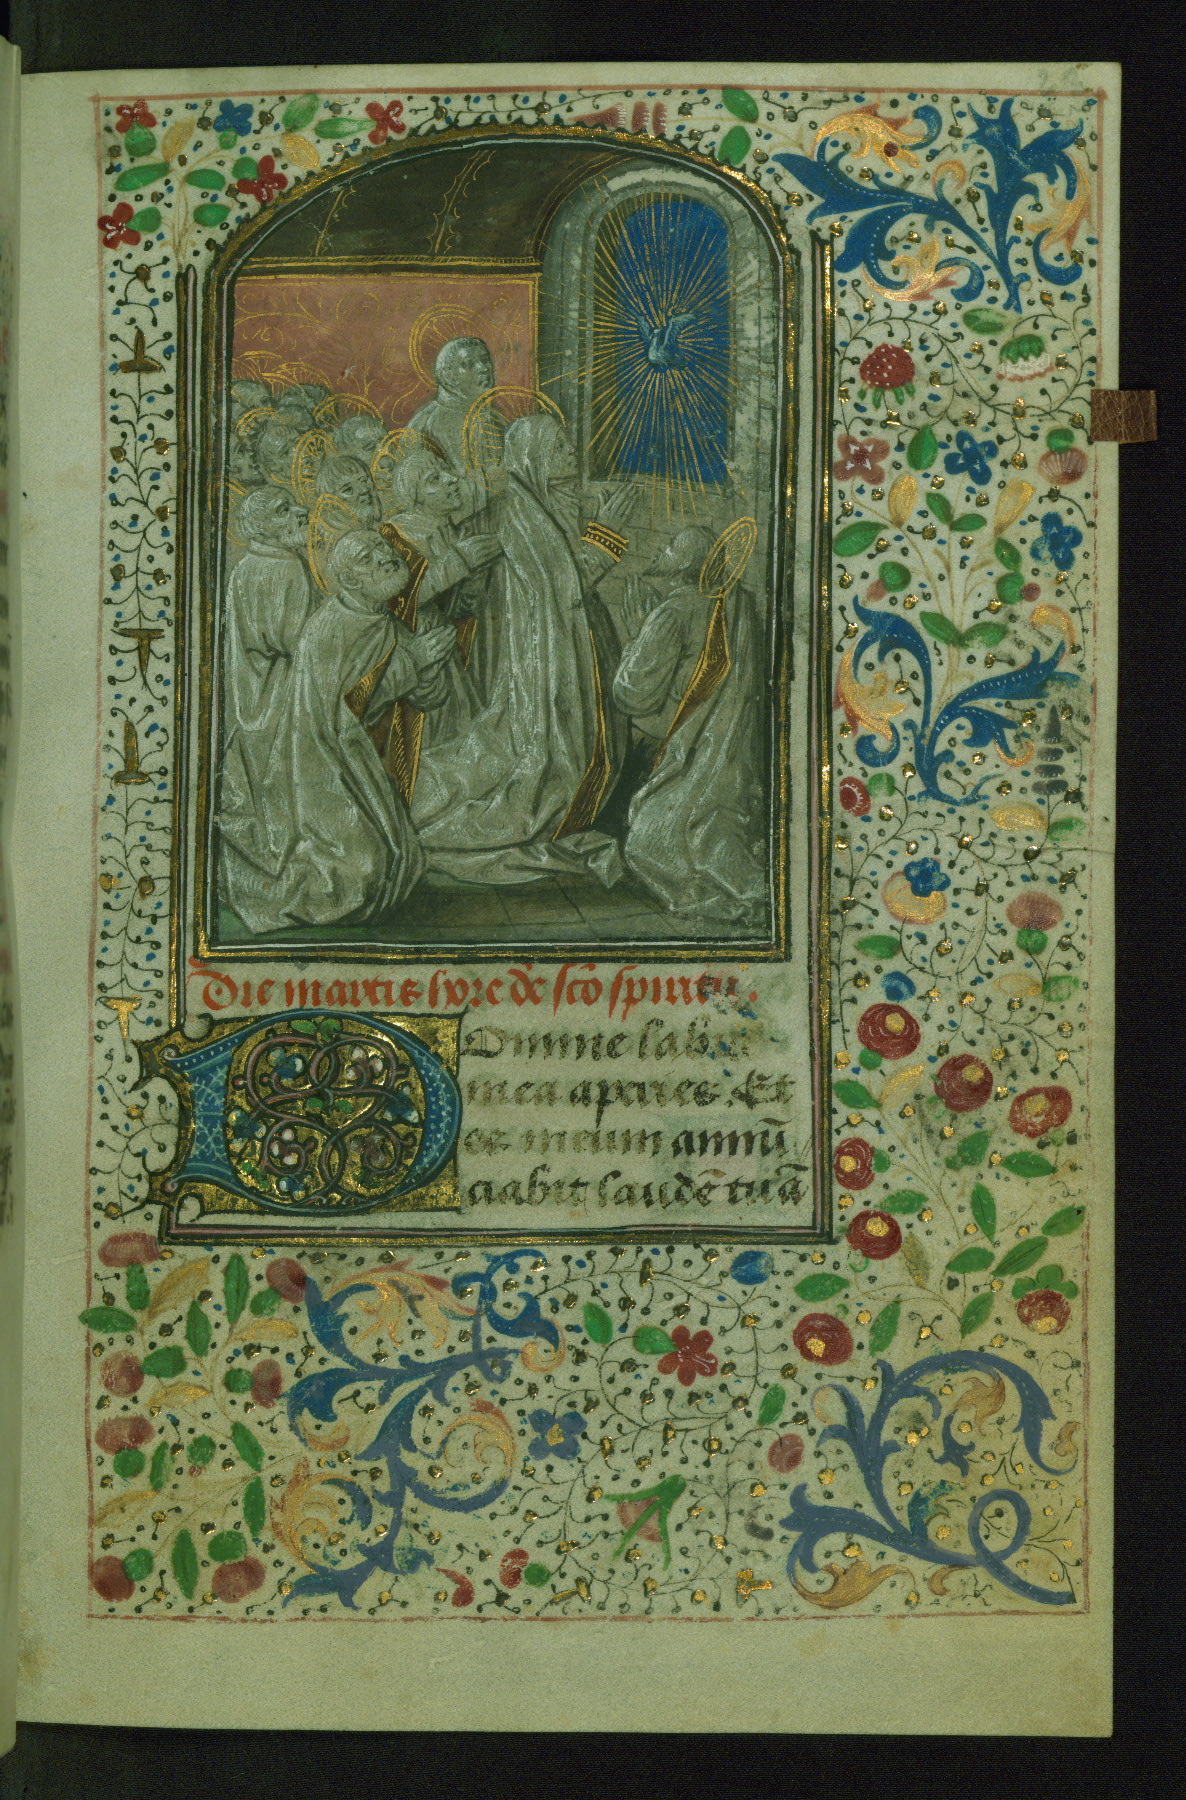 Die martis hore de sc̄o spiritu.
Domine labia
mea aperies. Et
os meum annū
ciabit laudē tuā